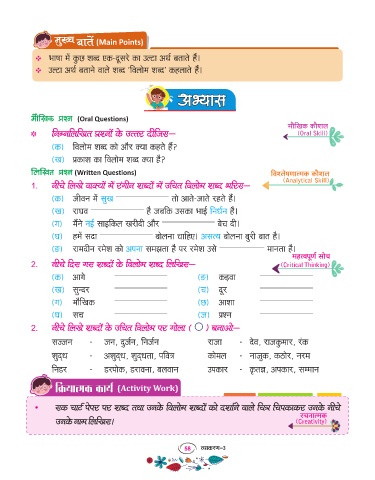 मुख्य बातें (Main Points)
❖ भाषा में कुछ शब्द एक-दूसरे का उल्टा अर्थ बताते हैं।
❖ उल्टा अर्थ बताने वाले शब्द 'विलोम शब्द' कहलाते हैं।
अभ्यास
मौखिक प्रश्न (Oral Questions)
मौखिक कौशल
(Oral Skill)
❖ निम्नलिखित प्रश्नों के उत्तर दीजिए–
(क) विलोम शब्द को और क्या कहते हैं?
(ख) प्रकाश का विलोम शब्द क्या है?
लिखित प्रश्न (Written Questions)
विश्लेषणात्मक कौशल
(Analytical Skill)
1. नीचे लिखे वाक्यों में रंगीन शब्दों में उचित विलोम शब्द भरिए–
(क) जीवन में सुख ________ तो आते-जाते रहते हैं।
(ख) राघव ________ है जबकि उसका भाई निर्धन है।
(ग) मैंने नई साइकिल खरीदी और ________ बेच दी।
(घ) हमें सदा ________ बोलना चाहिए। असत्य बोलना बुरी बात है।
(ङ) रामदीन रमेश को अपना समझता है पर रमेश उसे ________ मानता है।
महत्वपूर्ण सोच
(Critical Thinking)
2. नीचे दिए गए शब्दों के विलोम शब्द लिखिए–
(क) आगे - ________ (ङ) कड़वा - ________
(ख) सुन्दर - ________ (च) दूर - ________
(ग) मौखिक - ________ (छ) आशा - ________
(घ) सच - ________ (ज) प्रश्न - ________
2. नीचे लिखे शब्दों के उचित विलोम पर गोला ( ○ ) बनाओ–
सज्जन - जन, दुर्जन, निर्जन राजा - देव, राजकुमार, रंक
शुद्ध - अशुद्ध, शुद्धता, पवित्र कोमल - नाज़ुक, कठोर, नरम
निडर - डरपोक, डरावना, बलवान उपकार - कृतज्ञ, अपकार, सम्मान
क्रियात्मक कार्य (Activity Work)
• एक चार्ट पेपर पर शब्द तथा उनके विलोम शब्दों को दर्शाने वाले चित्र चिपकाकर उनके नीचे
उनके नाम लिखिए।
रचनात्मक
(Creativity)
58 व्याकरण-3